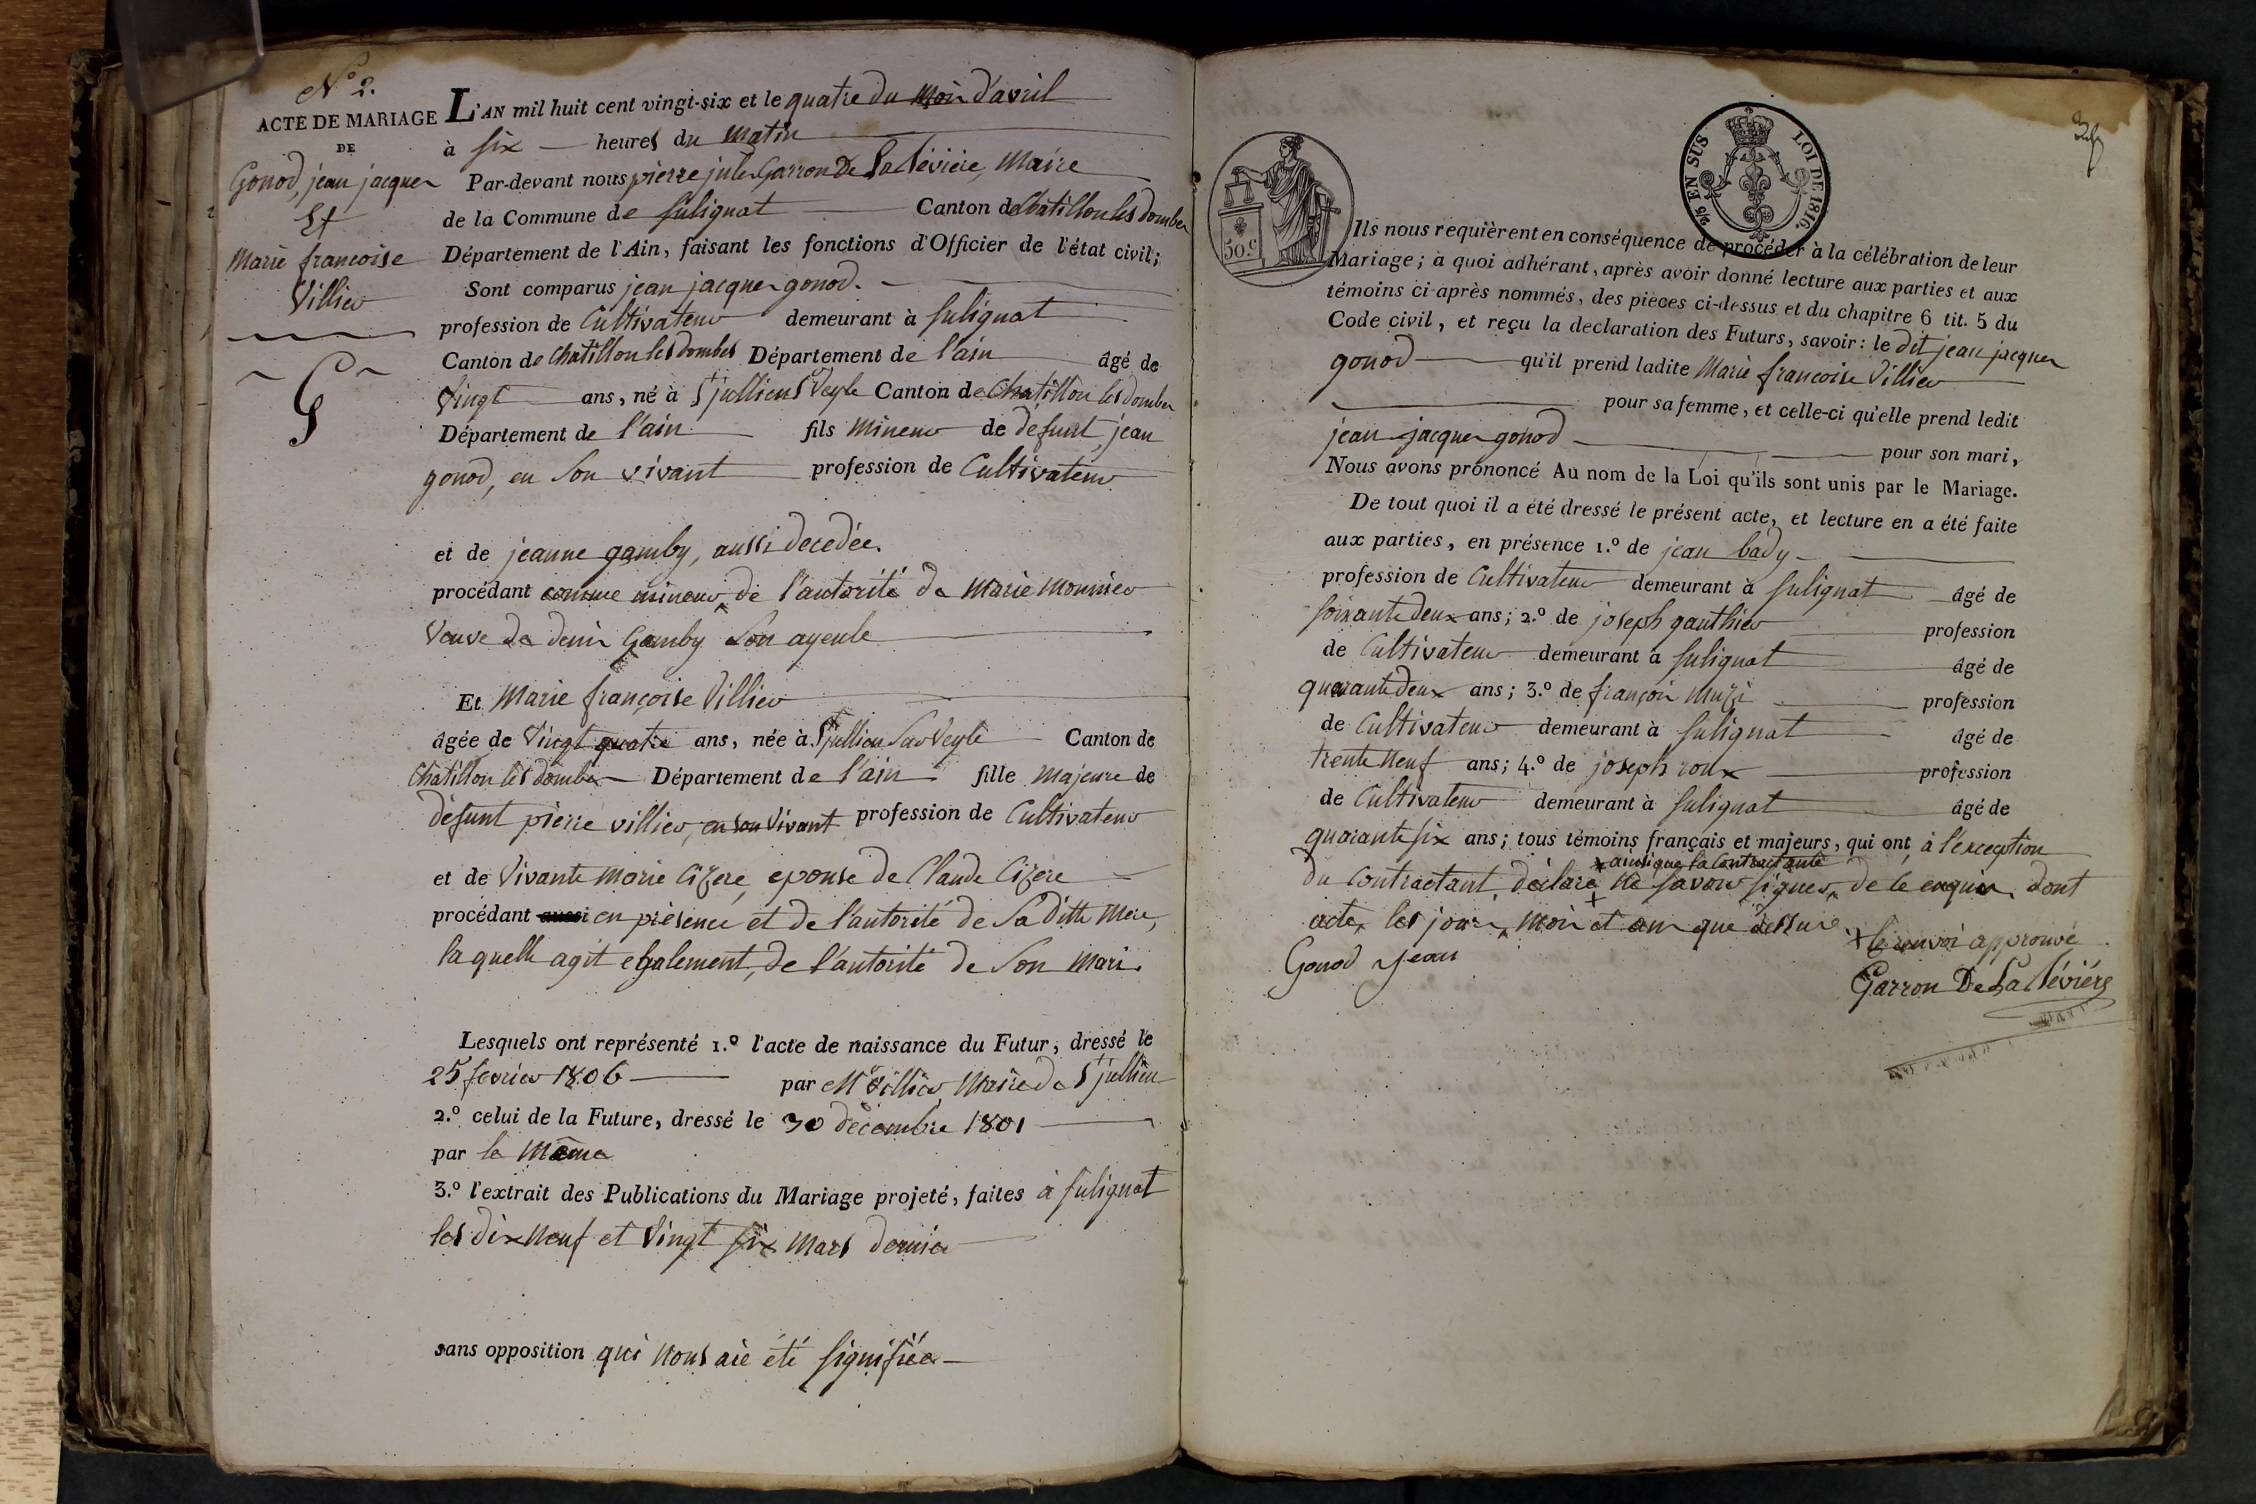 N° 2.
ACTE DE MARIAGE
DE
Gonod, jean jacques
Et
Marie francoise
Villier
L'AN mil huit cent vingt-six et le quatre du mois d'avril
à six heures du matin
Par-devant nous pierre jules Garron De La Bévière, Maire
de la Commune de sulignat Canton de Chatillon les dombes
Département de l'Ain, faisant les fonctions d'Officier de l'état civil;
Sont comparus jean jacques gonod.
profession de Cultivateur demeurant à sulignat
Canton de Chatillon les dombes Département de l'ain âgé de
vingt ans, né à St jullien s Veyle Canton de Chatillon les dombes
Département de l'ain fils mineur de défunt jean
gonod, en son vivant profession de Cultivateur
et de jeanne gamby, aussi decedée.
procédant comme mineur, de l'autorité de Marie Monnier
Veuve de denis Gamby son ayeule
Et Marie françoise Villier
âgée de vingt quatre ans, née à St jullien sur Veyle Canton de
Chatillon les dombes Département de l'ain fille majeure de
défunt pierre villier, en son vivant profession de Cultivateur
et de vivante Marie Cizere, epouse de Claude Cizere
procédant en présence et de l'autorité de sa ditte mere,
la quelle agit egalement, de l'autorité de son mari.
Lesquels ont représenté 1.° l'acte de naissance du Futur, dressé le
25 fevrier 1806 par Mr villier, Maire de St jullien
2.° celui de la Future, dressé le 30 décembre 1801
par le même
3.° l'extrait des Publications du Mariage projeté, faites à sulignat
les dix neuf et vingt six mars dernier
sans opposition qui nous aie été signifiée
50 c
25 EN SUS LOI DE 1816.
Ils nous requièrent en conséquence de procéder à la célébration de leur
Mariage; à quoi adhérant, après avoir donné lecture aux parties et aux
témoins ci-après nommés, des pièces ci-dessus et du chapitre 6 tit. 5 du
Code civil, et reçu la déclaration des Futurs, savoir: le dit jean jacques
gonod qu'il prend ladite Marie francoise Villier
pour sa femme, et celle-ci qu'elle prend ledit
jean jacques gonod pour son mari,
Nous avons prononcé Au nom de la Loi qu'ils sont unis par le Mariage.
De tout quoi il a été dressé le présent acte, et lecture en a été faite
aux parties, en présence 1.° de jean bady
profession de Cultivateur demeurant à sulignat âgé de
soixante deux ans; 2.° de joseph gauthier profession
de Cultivateur demeurant à sulignat âgé de
quarante deux ans; 3.° de françois profession
de Cultivateur demeurant à sulignat âgé de
trente neuf ans; 4.° de joseph roux profession
de Cultivateur demeurant à sulignat âgé de
quarante six ans; tous témoins français et majeurs, qui ont, à l'exception
x ainsi que la Contractante
du Contractant, déclaré x ne savoir signer, de ce enquis. dont
acte, les jour, mois et an que dessus
x le renvoi approuvé
Gonod Jean
Garron De La Bévière